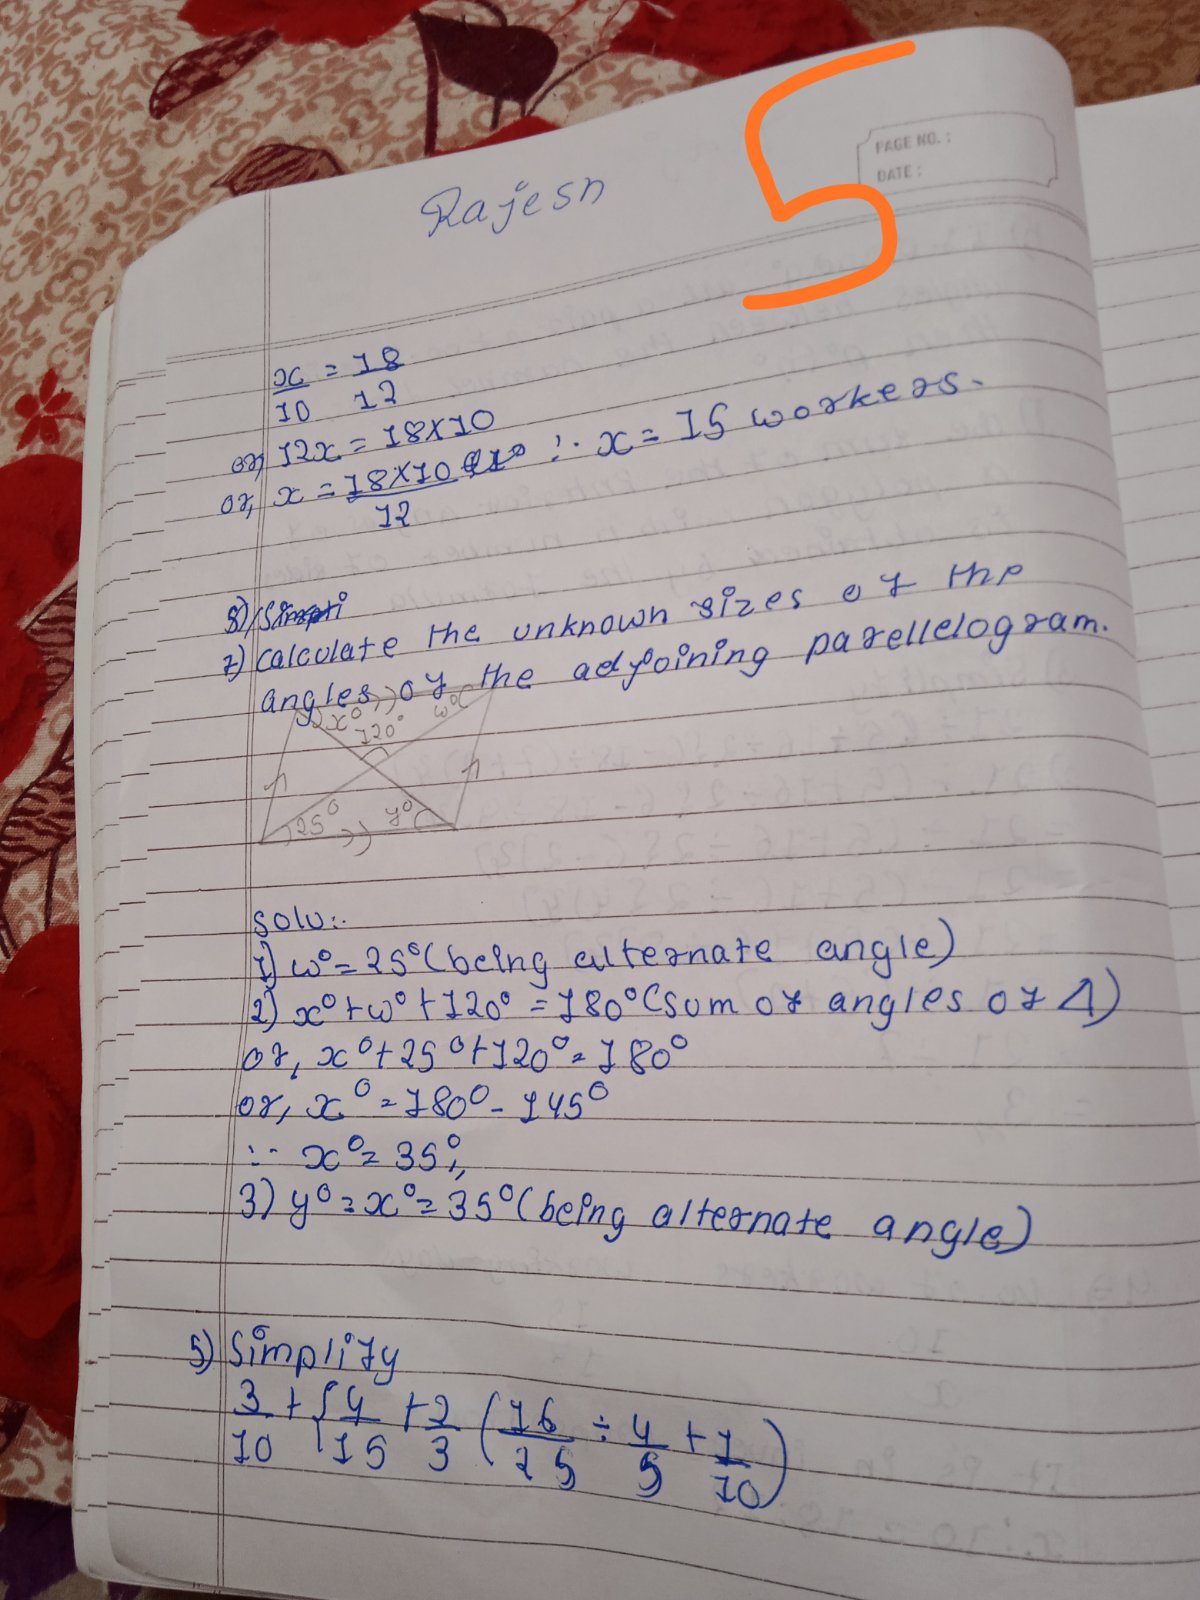 5
PAGE NO. :
DATE :
Rajesh
x/10 = 18/12
or, 12x = 18×10
or, x = 18×10/12 ∴ x = 15 workers.
8) Simpli
7) Calculate the unknown sizes of the
angles of the adjoining parellelogram.
x° w°
120°
25° y°
Solu:-
1) w° = 25° (being alternate angle)
2) x° + w° + 120° = 180° (sum of angles of Δ)
or, x° + 25° + 120° = 180°
or, x° = 180° - 145°
∴ x° = 35°,,
3) y° = x° = 35° (being alternate angle)
5) Simplify
3/10 + { 4/15 + 2/3 ( 16/25 ÷ 4/5 + 1/10 )